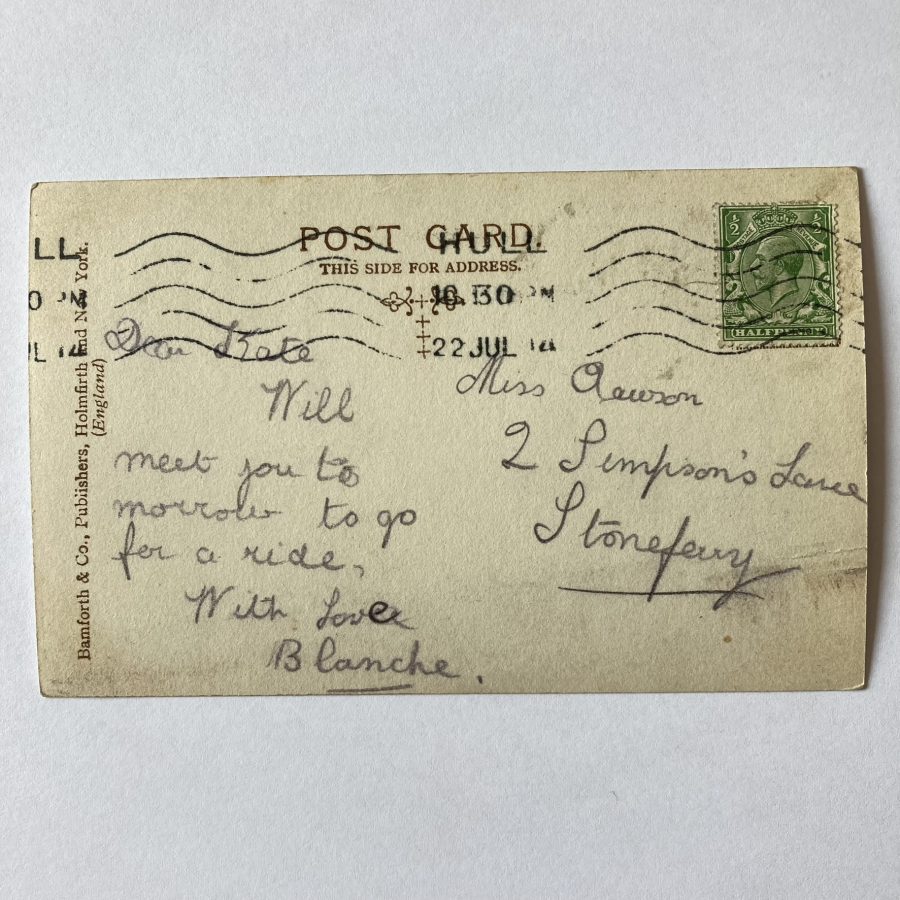 POST CARD.
THIS SIDE FOR ADDRESS.
HULL
10.30 PM
22 JUL 14
LL
0 PM
JL 14
½ ½
HALFPENNY
Bamforth & Co., Publishers, Holmfirth and New York.
(England)
Dear Kate
Will
meet you to
morrow to go
for a ride,
With Love
Blanche.
Miss Rawson
2 Simpson's Lane
Stoneferry